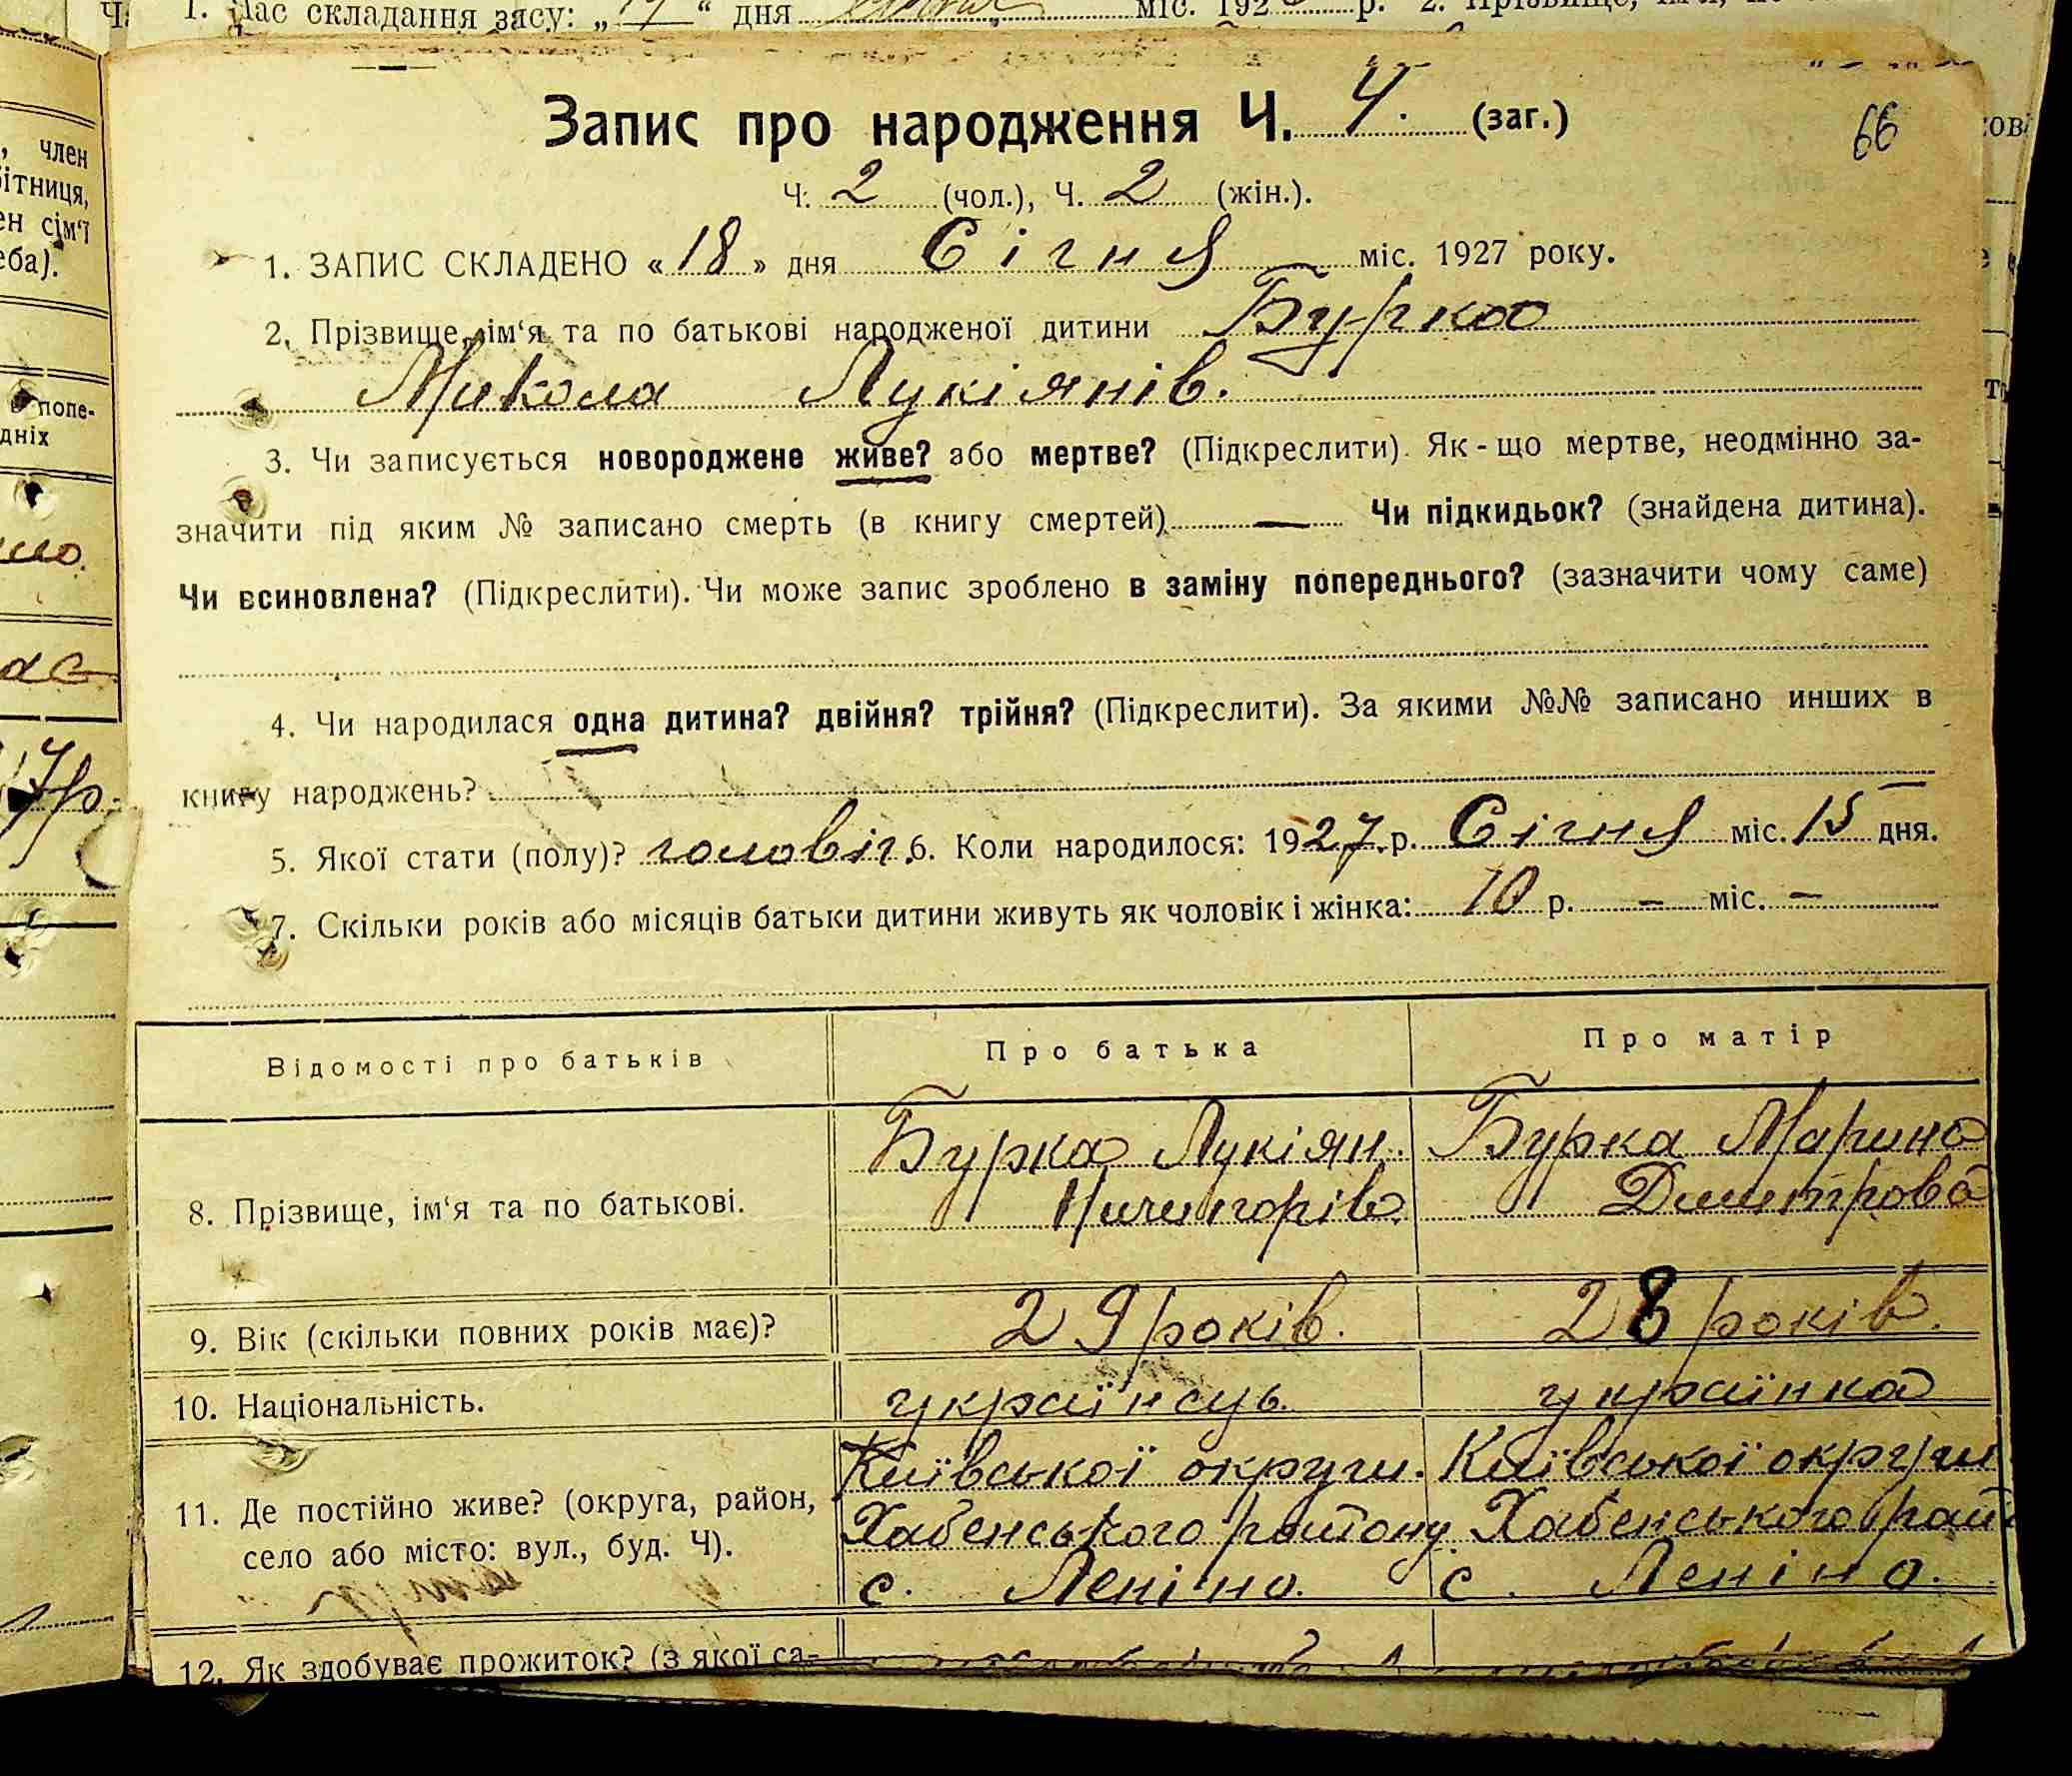 1. Час складання засу: „ “ дня міс. 192 р. 2. Прізвище, ім'я, по
Запис про народження Ч. 4. (заг.)
66
Ч. 2 (чол.), Ч. 2 (жін.).
1. ЗАПИС СКЛАДЕНО «18» дня Січня міс. 1927 року.
2. Прізвище, ім‘я та по батькові народженої дитини Бурка
Микола Лукіянів.
3. Чи записується новороджене живе? або мертве? (Підкреслити). Як-що мертве, неодмінно за-
значити під яким № записано смерть (в книгу смертей) — Чи підкидьок? (знайдена дитина).
Чи всиновлена? (Підкреслити). Чи може запис зроблено в заміну попереднього? (зазначити чому саме)
4. Чи народилася одна дитина? двійня? трійня? (Підкреслити). За якими №№ записано инших в
книгу народжень? —
5. Якої стати (полу)? чоловіч. 6. Коли народилося: 1927 р. Січня міс. 15 дня.
7. Скільки років або місяців батьки дитини живуть як чоловік і жінка: 10 р. — міс. —
Відомості про батьків Про батька Про матір
8. Прізвище, ім‘я та по батькові. Бурка Лукіян Бурка Марина
Ничипорів. Дмитрова
9. Вік (скільки повних років має)? 29 років. 28 років.
10. Національність. українець. українка
11. Де постійно живе? (округа, район, Київської округи. Київської округи
село або місто: вул., буд. Ч). Хабенського району Хабенського рай
с. Леніно. с. Леніно.
12. Як здобуває прожиток? (з якої са-
член
бітниця,
ен сім‘ї
еба).
попе-
дніх